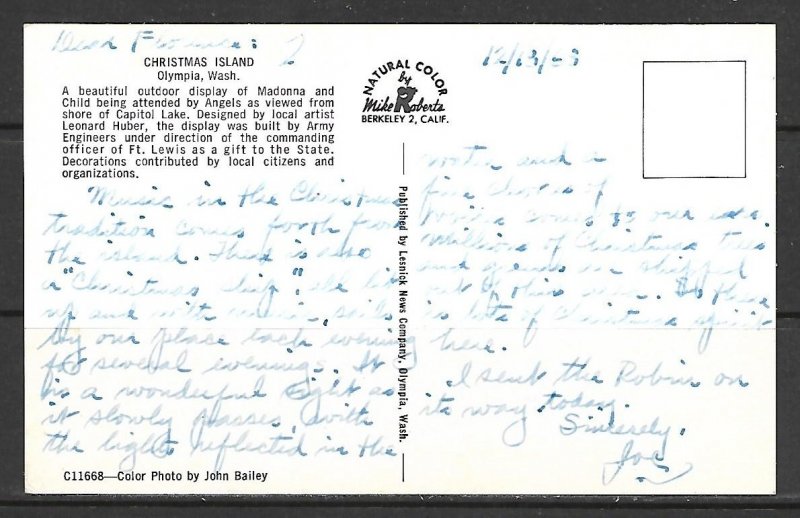 Dear Florence:
12/13/63
CHRISTMAS ISLAND
Olympia, Wash.
A beautiful outdoor display of Madonna and
Child being attended by Angels as viewed from
shore of Capitol Lake. Designed by local artist
Leonard Huber, the display was built by Army
Engineers under direction of the commanding
officer of Ft. Lewis as a gift to the State.
Decorations contributed by local citizens and
organizations.
NATURAL COLOR
by
Mike Roberts
BERKELEY 2, CALIF.
Music in the Christmas
tradition comes forth from
the island. There is also
a "Christmas ship," all lit
up and with music, sails
by our place each evening
for several evenings. It
is a wonderful sight as
it slowly passes, with
the lights reflected in the
water and a
fine chorus of
voices comes to our ears.
Millions of Christmas trees
and greens are shipped
out of this area. So there
is lots of Christmas spirit
here.
I sent the Robin on
its way today.
Sincerely,
Joe
Published by Lesnick News Company, Olympia, Wash.
C11668—Color Photo by John Bailey